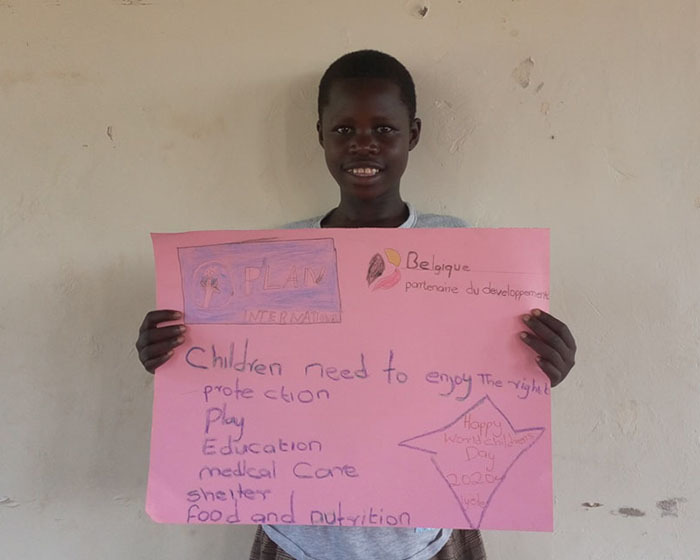 PLAN
INTERNATIONAL
Belgique
partenaire du developpement
Children need to enjoy The right
protection
Play
Education
medical Care
shelter
food and nutrition
Happy
World childrens
Day
2020